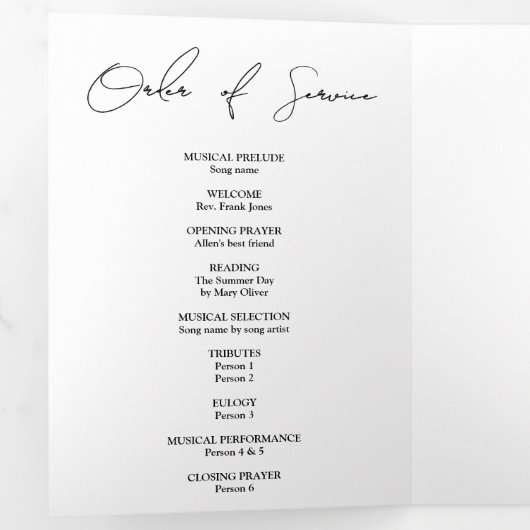 Order of Service
MUSICAL PRELUDE
Song name
WELCOME
Rev. Frank Jones
OPENING PRAYER
Allen's best friend
READING
The Summer Day
by Mary Oliver
MUSICAL SELECTION
Song name by song artist
TRIBUTES
Person 1
Person 2
EULOGY
Person 3
MUSICAL PERFORMANCE
Person 4 & 5
CLOSING PRAYER
Person 6